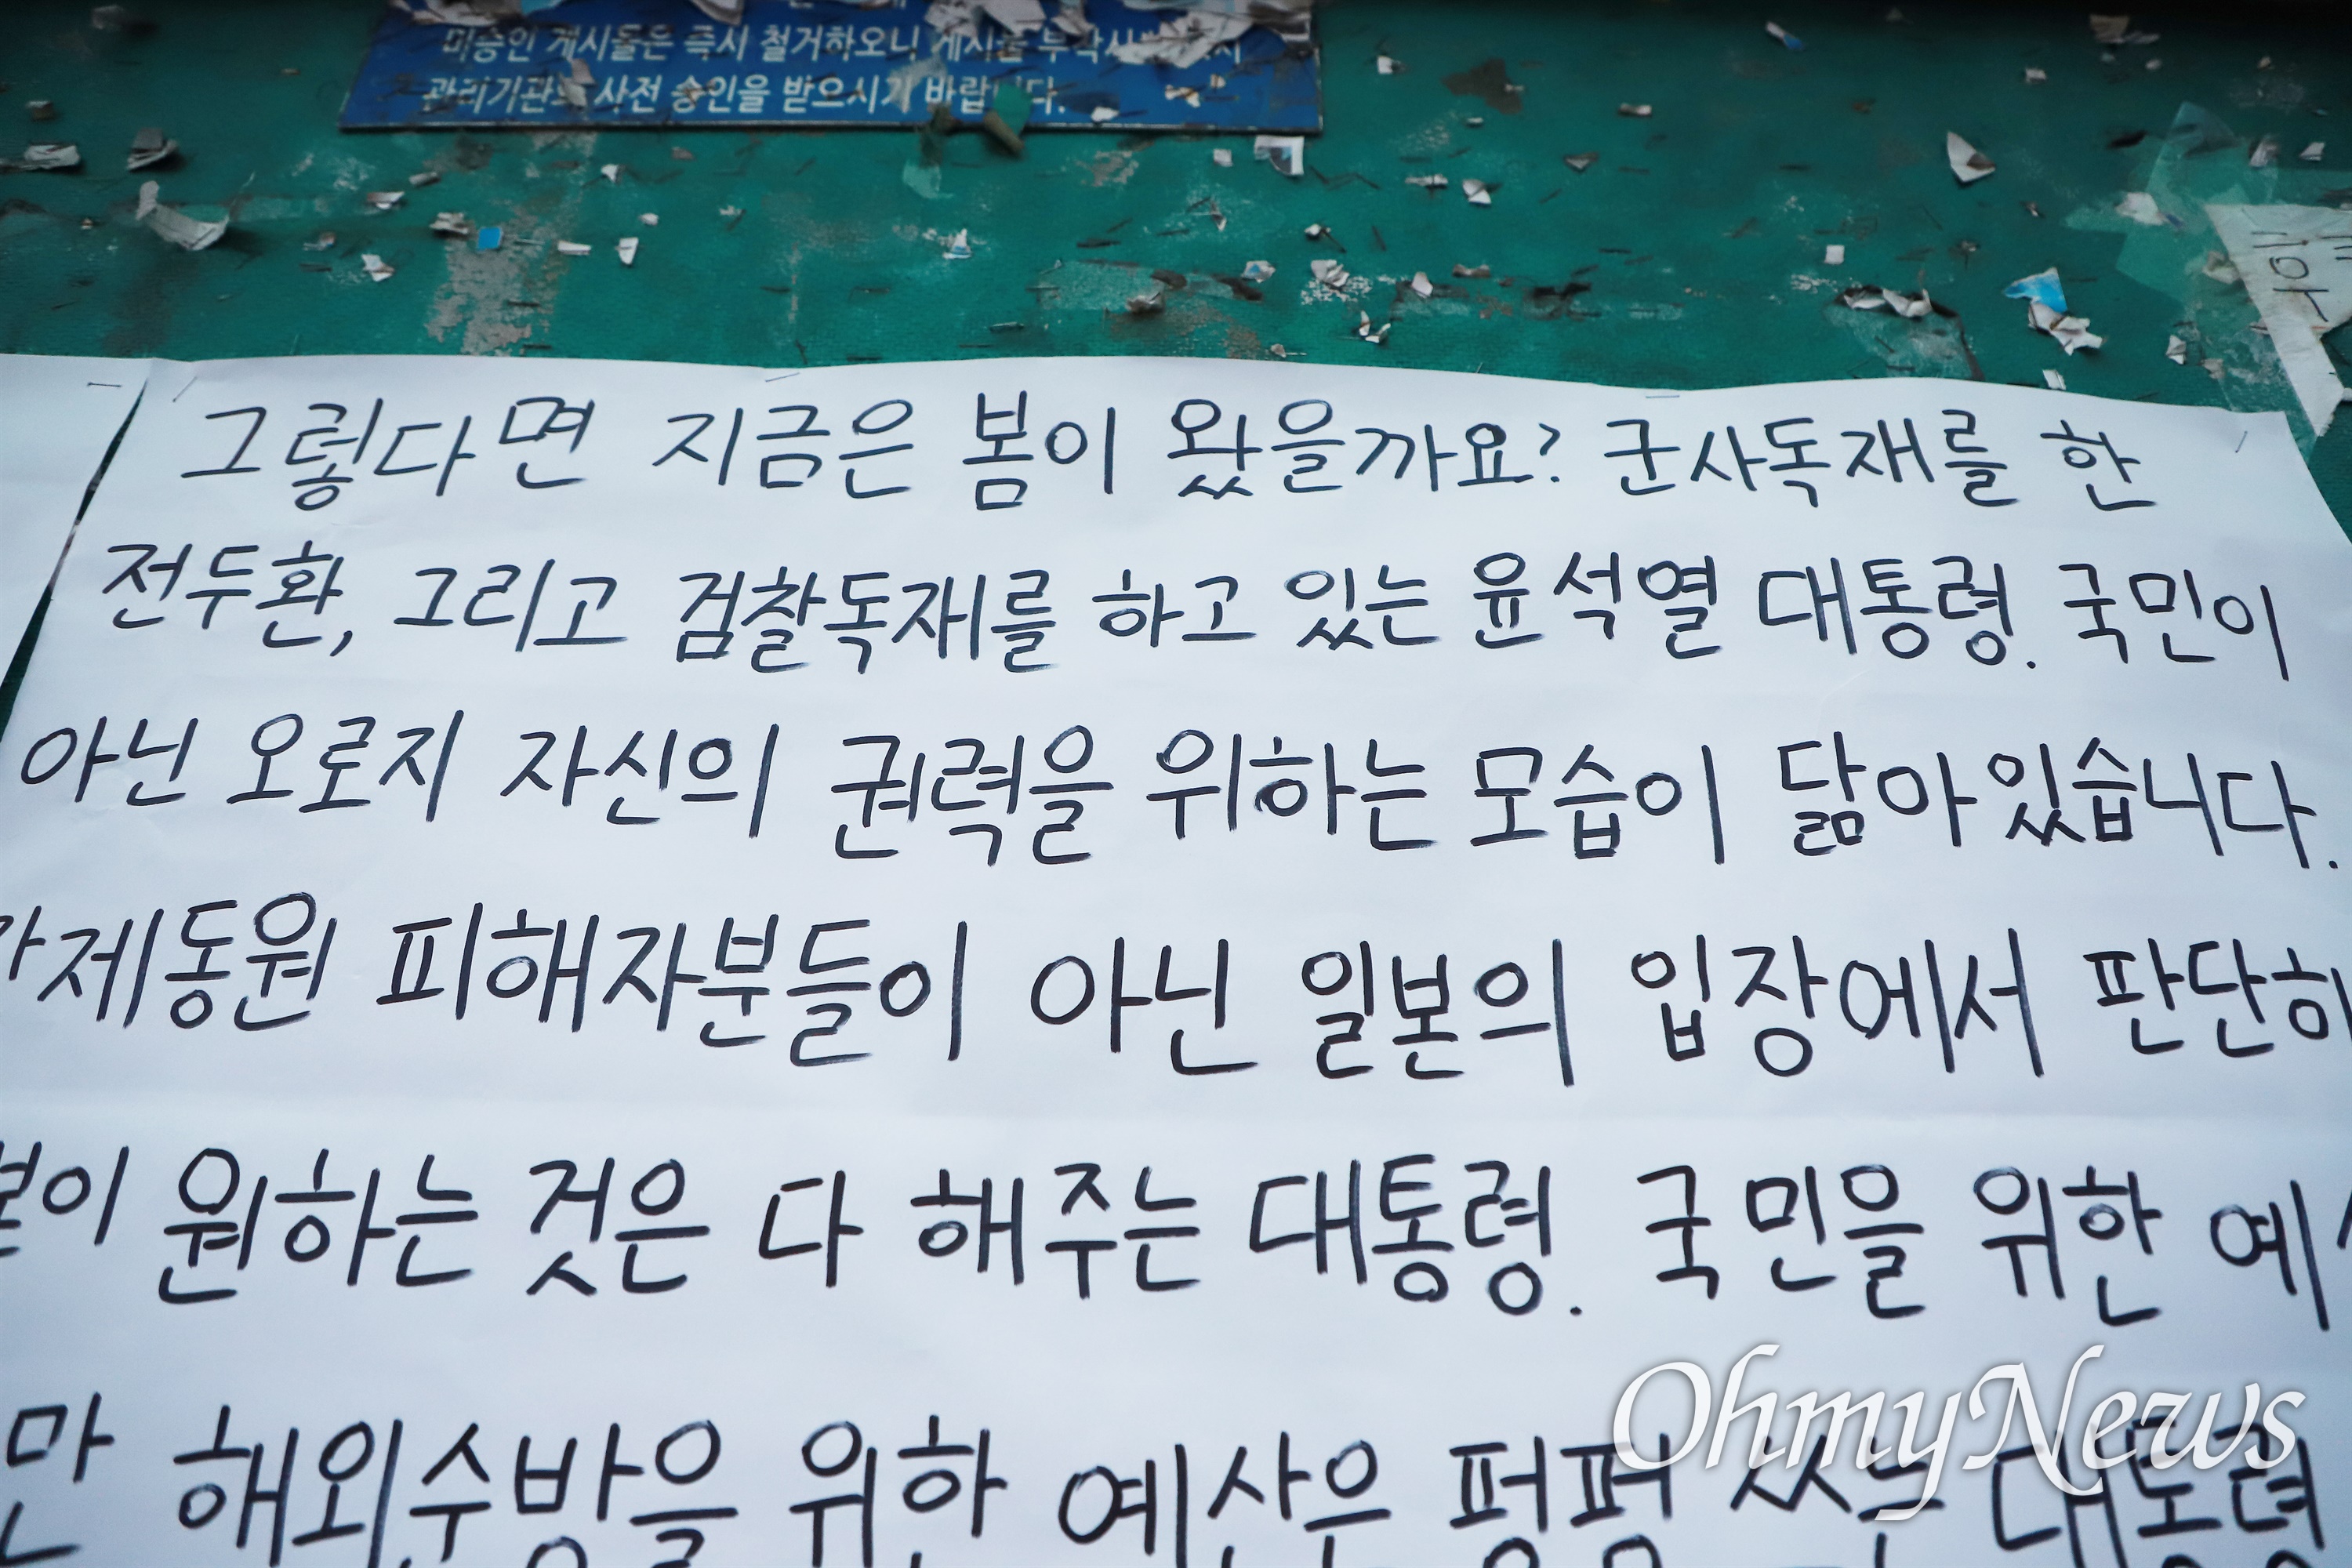 미승인 게시물은 즉시 철거하오니 게시물
관리기관의 사전 승인을 받으시기 바랍니다.
그렇다면 지금은 봄이 왔을까요? 군사독재를 한
전두환, 그리고 검찰독재를 하고 있는 윤석열 대통령. 국민이
아닌 오로지 자신의 권력을 위하는 모습이 닮아있습니다.
강제동원 피해자분들이 아닌 일본의 입장에서 판단하
본이 원하는 것은 다 해주는 대통령. 국민을 위한 예
만 해외순방을 위한 예산은 펑펑 쓰는 대통령
OhmyNews